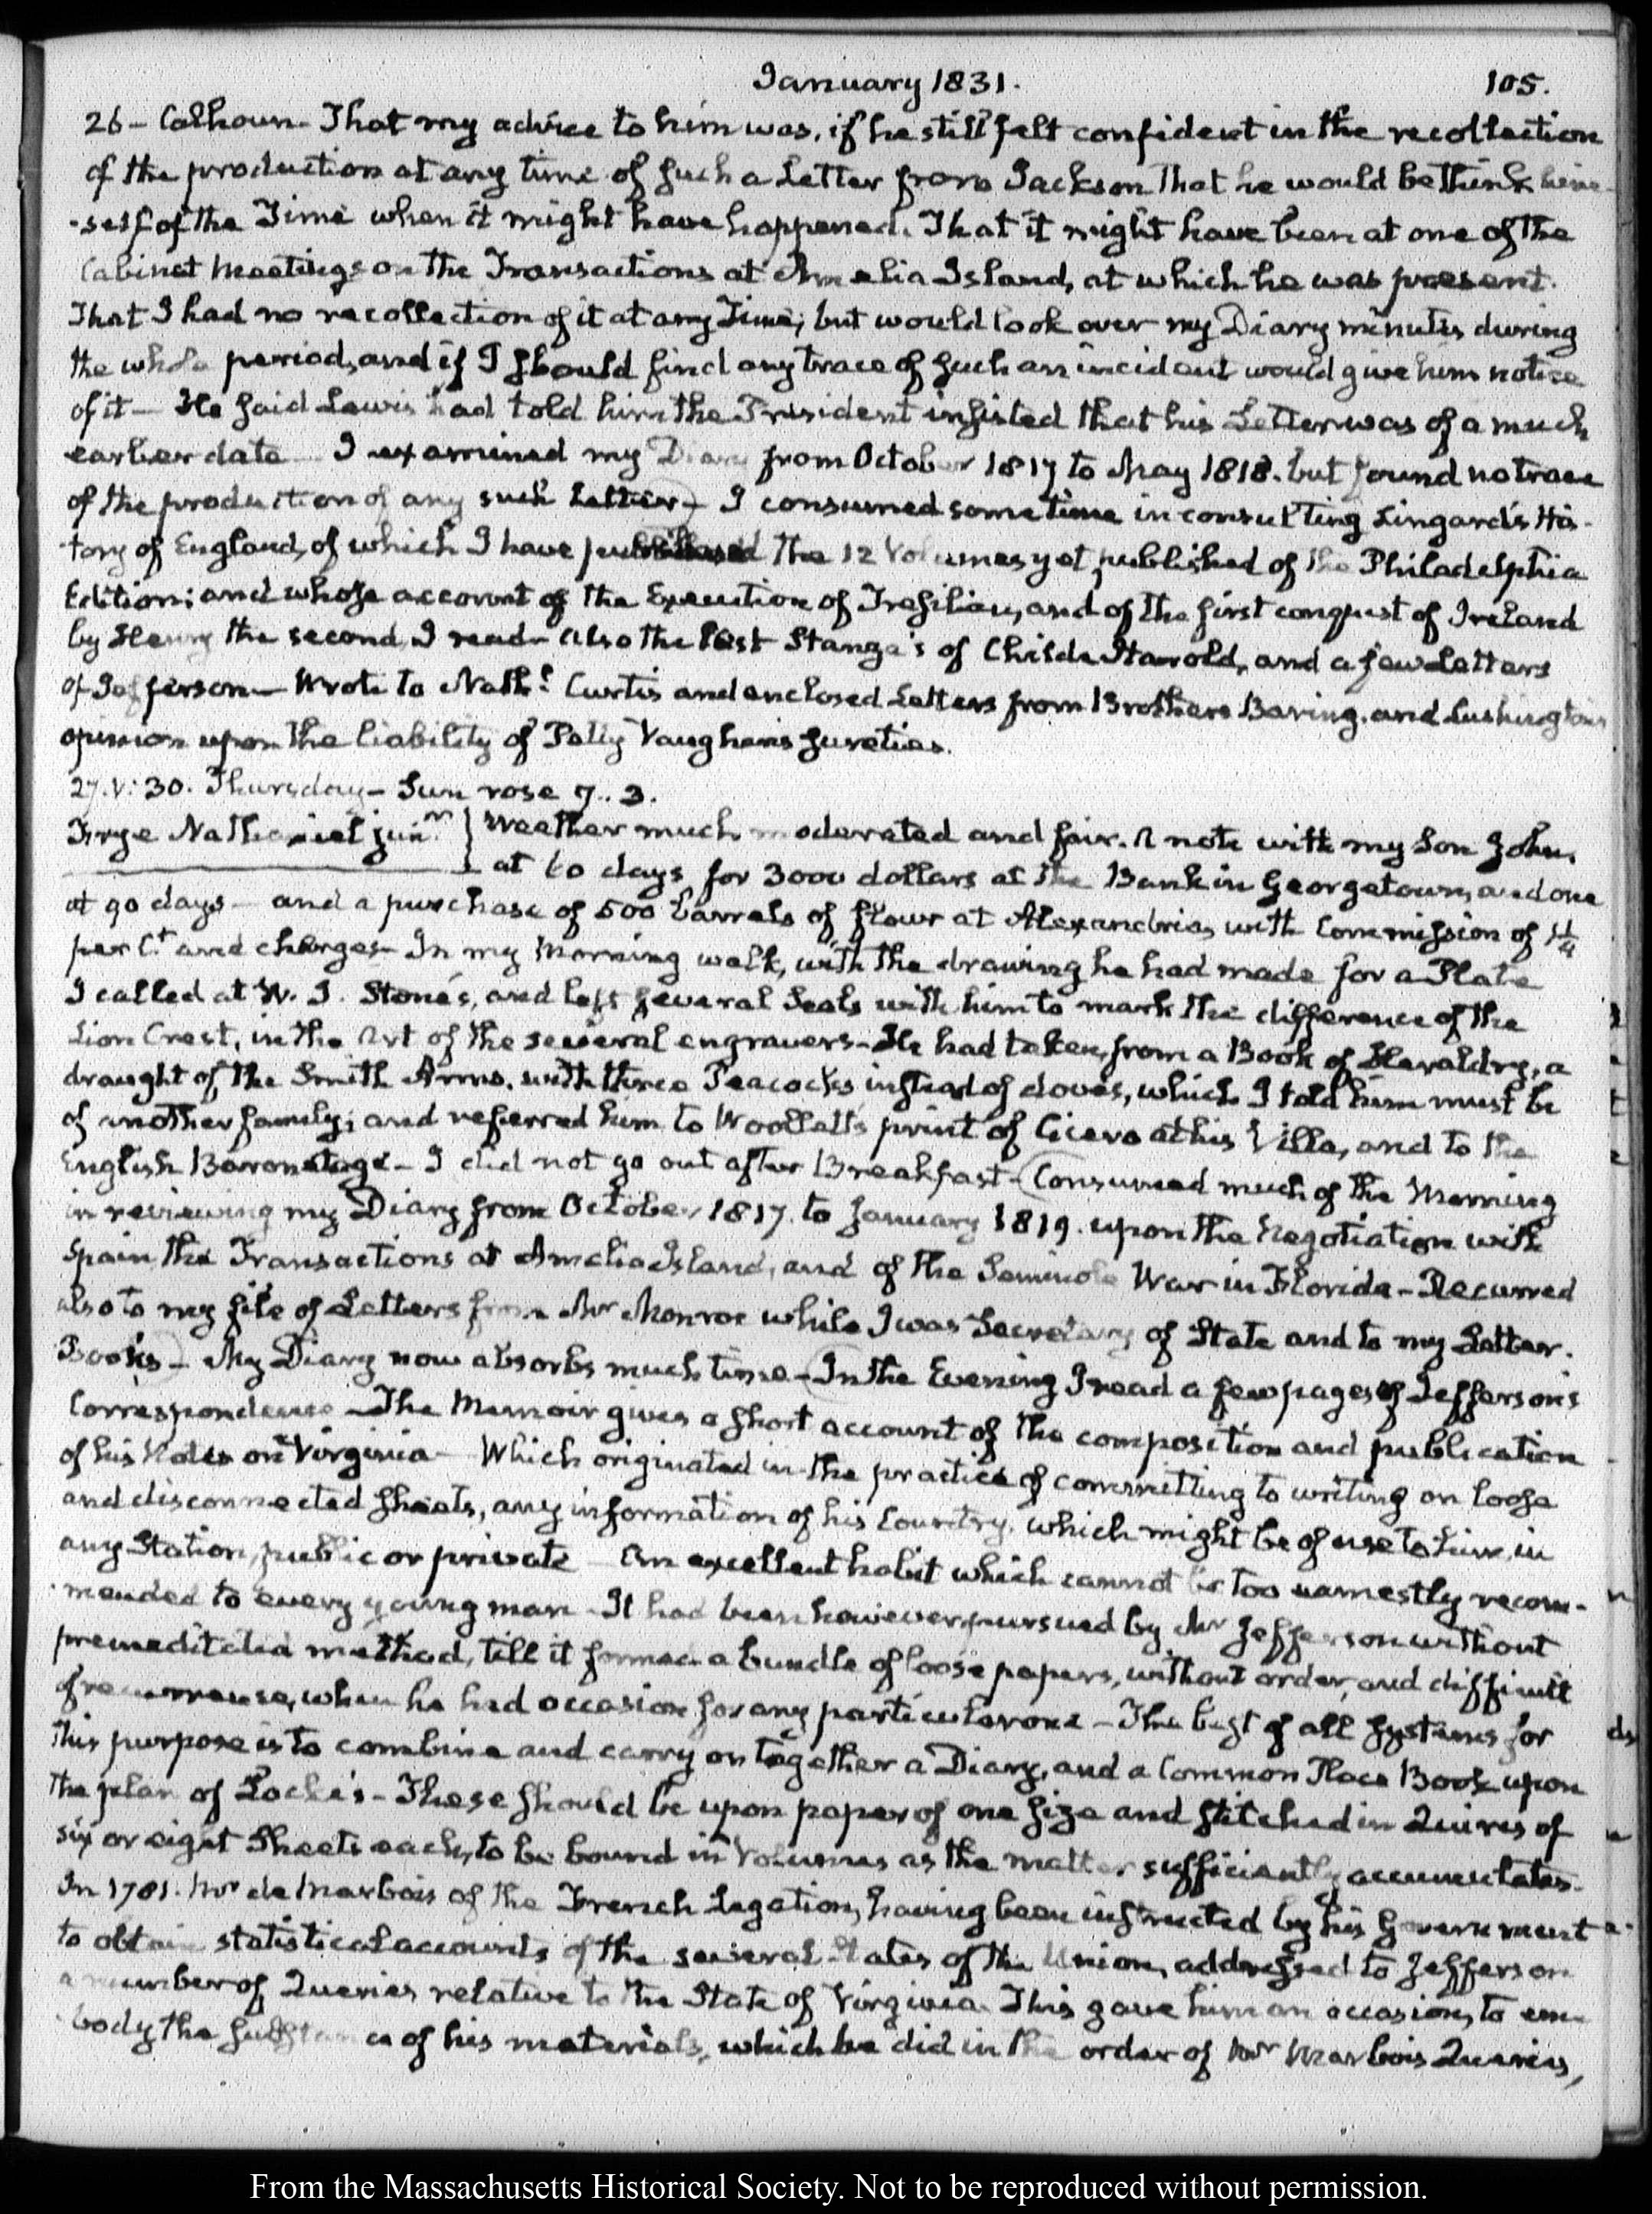 January 1831. 105.
26 - Calhoun - That my advice to him was, if he still felt confident in the recollection
of the production at any time of such a Letter from Jackson that he would bethink him-
-self of the Time when it might have happened. That it might have been at one of the
Cabinet Meetings on the Transactions at Amelia Island, at which he was present.
That I had no recollection of it at any Time; but would look over my Diary minutes during
the whole period, and if I should find any trace of such an incident would give him notice
of it - He said Lewis had told him the President insisted that his Letter was of a much
earlier date I examined my Diary from October 1817 to May 1818. but found no trace
of the production of any such Letter - I consumed some time in consulting Lingard's His-
tory of England, of which I have the 12 Volumes yet published of the Philadelphia
Edition; and whose account of the Execution of Tresilian, and of the first conquest of Ireland
by Henry the second I read - also the last Stanza's of Childe Harold, and a few Letters
of Jefferson - Wrote to Nathl. Curtis and enclosed Letters from Brothers Baring, and Lushington's
opinion upon the liability of Petty Vaughan's sureties.
27. V: 30. Thursday - Sun rose 7..3.
Frye Nathaniel junr. } Weather much moderated and fair. A note with my Son John,
at 60 days for 3000 dollars at the Bank in Georgetown, and one
at 90 days - and a purchase of 500 barrels of flour at Alexandria, with Commission of 1¼
per Ct. and charges - In my Morning walk, with the drawing he had made for a Plate
I called at W. J. Stone's, and left several Seals with him to mark the difference of the
Lion Crest, in the Art of the several engravers - He had taken, from a Book of Heraldry, a
draught of the Smith Arms, with three Peacocks instead of doves, which I told him must be
of another family; and referred him to Woollett's print of Cicero at his Villa, and to the
English Baronetage - I did not go out after Breakfast - Consumed much of the Morning
in reviewing my Diary from October 1817. to January 1819. upon the Negotiation with
Spain the Transactions at Amelia Island, and of the Seminole War in Florida - Recurred
also to my file of Letters from Mr Monroe while I was Secretary of State and to my Letter-
Books - My Diary now absorbs much time - In the Evening I read a few pages of Jefferson's
Correspondence - The Memoir gives a short account of the composition and publication
of his Notes on Virginia - Which originated in the practice of committing to writing on loose
and disconnected sheets, any information of his Country, which might be of use to him, in
any Station, public or private - An excellent habit which cannot be too earnestly recom-
-mended to every young man - It had been however pursued by Mr Jefferson without
premeditated method, till it formed a bundle of loose papers, without order, and difficult
of recurrence, when he had occasion for any particular one - The best of all systems for
this purpose is to combine and carry on together a Diary, and a Common Place Book upon
the plan of Locke's - These should be upon paper of one size and stitched in Quires of
six or eight Sheets each, to be bound in Volumes as the matter sufficiently accumulates -
In 1781. Mr de Marbois of the French Legation, having been instructed by his Government
to obtain statistical accounts of the several States of the Union, addressed to Jefferson
a number of Queries relative to the State of Virginia. This gave him an occasion, to em-
-body the substance of his materials, which he did in the order of Mr Marbois Queries,
From the Massachusetts Historical Society. Not to be reproduced without permission.